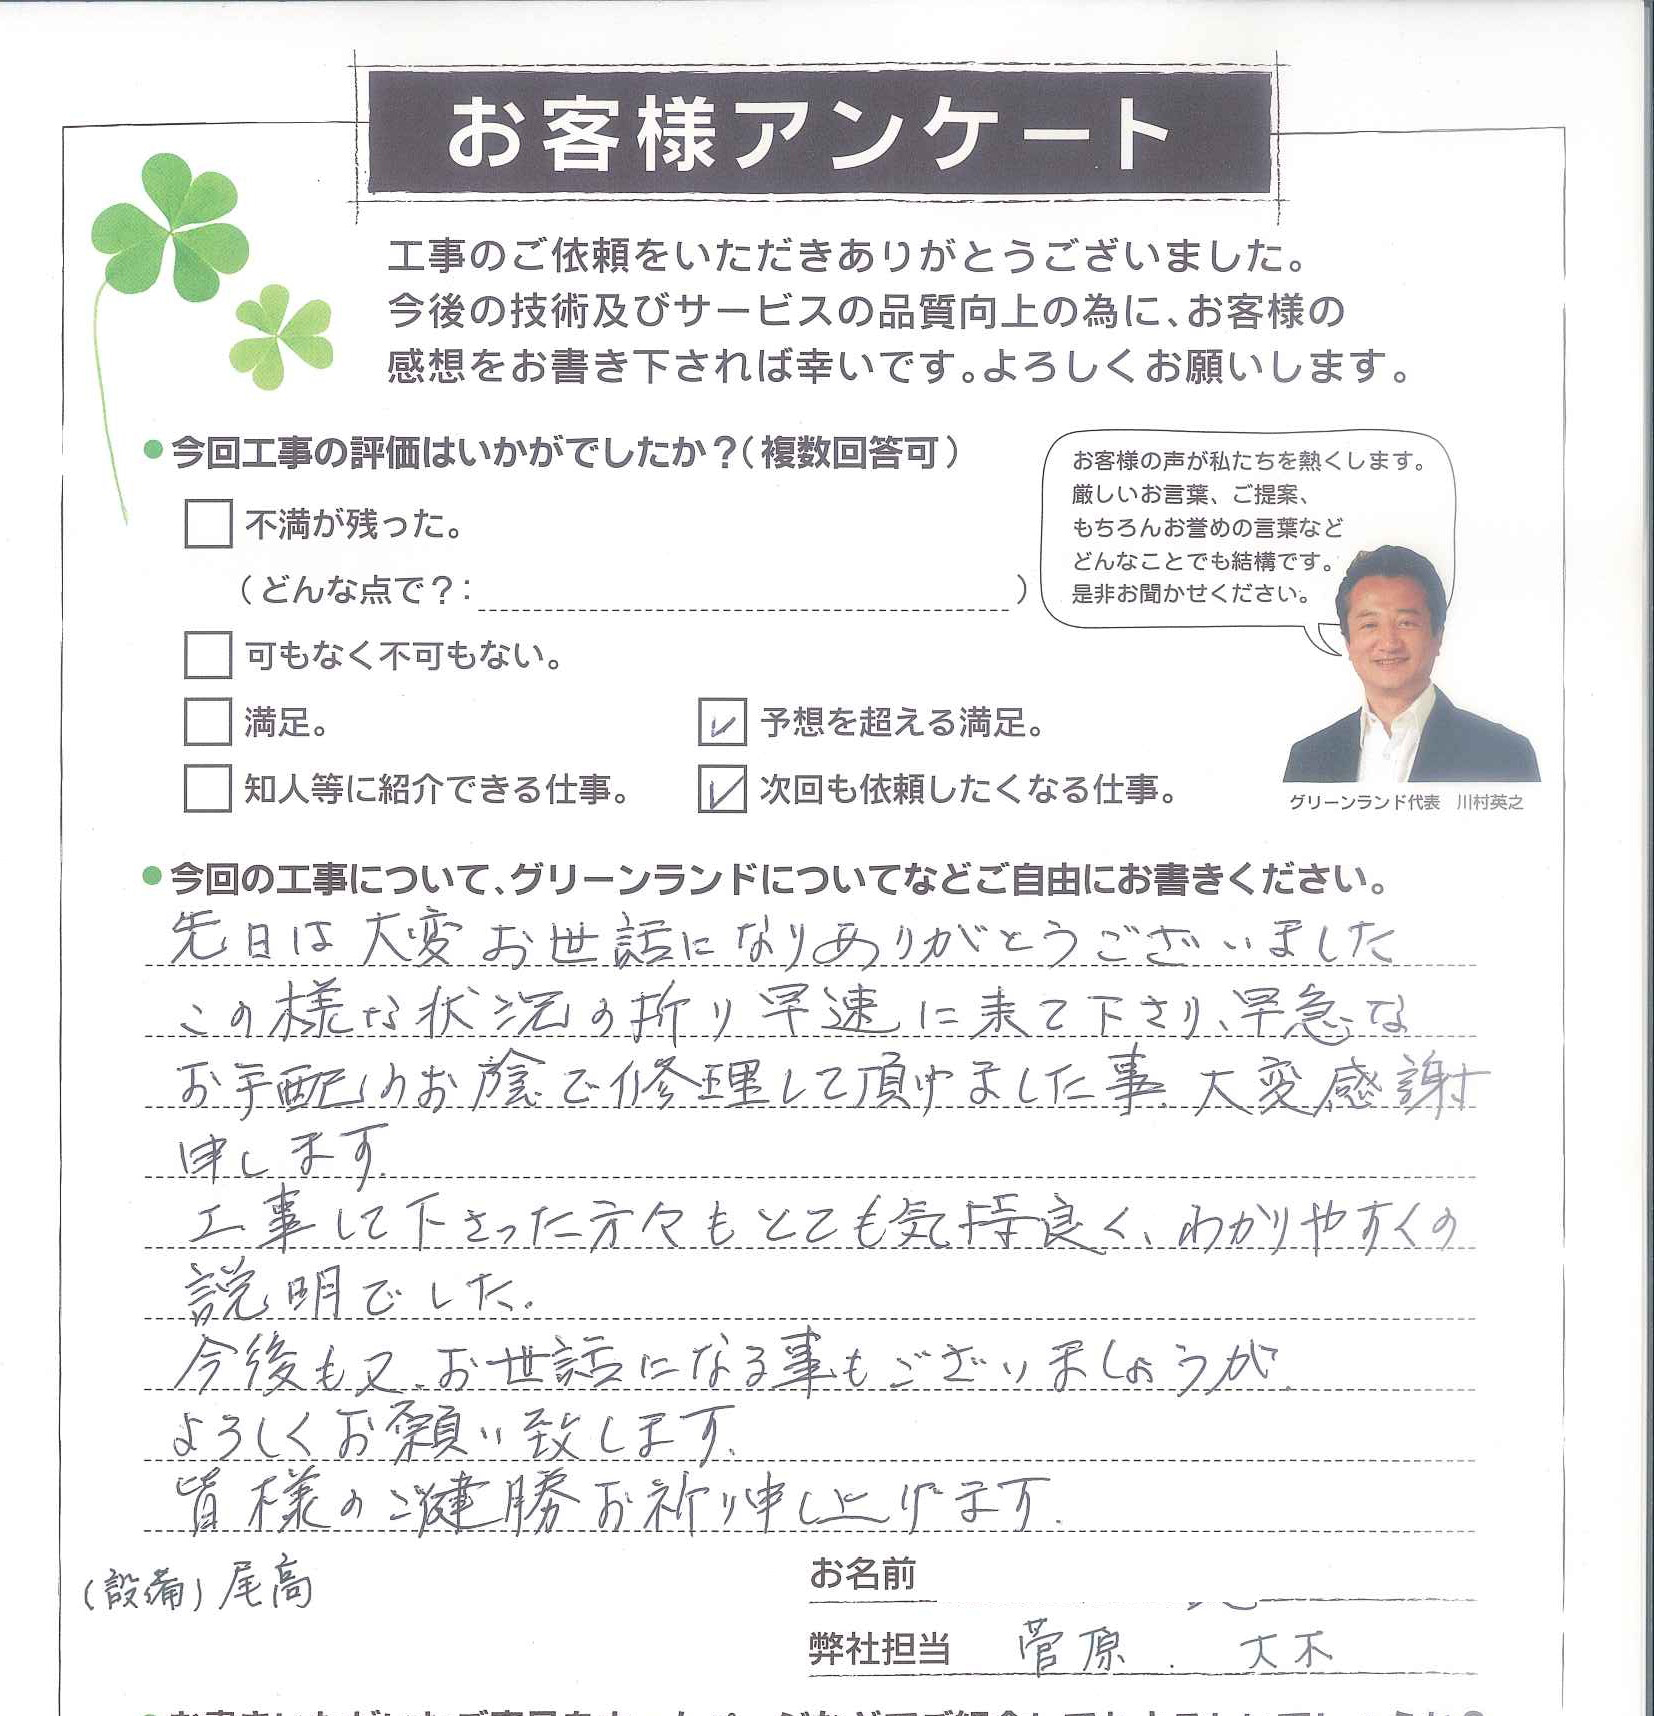 お客様アンケート
工事のご依頼をいただきありがとうございました。
今後の技術及びサービスの品質向上の為に、お客様の
感想をお書き下されば幸いです。よろしくお願いします。
●今回工事の評価はいかがでしたか？（複数回答可）
お客様の声が私たちを熱くします。
厳しいお言葉、ご提案、
もちろんお誉めの言葉など
どんなことでも結構です。
是非お聞かせください。
不満が残った。
（どんな点で？：　　　）
可もなく不可もない。
満足。
予想を超える満足。
知人等に紹介できる仕事。
次回も依頼したくなる仕事。
グリーンランド代表　川村英之
●今回の工事について、グリーンランドについてなどご自由にお書きください。
先日は大変お世話になりありがとうございました
この様な状況の折り早速に来て下さり、早急な
お手配のお陰で修理して頂けました事、大変感謝
申します。
工事して下さった方々もとても気持良く、わかりやすくの
説明でした。
今後も又、お世話になる事もございましょうが、
よろしくお願い致します。
皆様のご健勝お祈り申し上げます。
（設備）尾高
お名前
弊社担当　菅原．大木